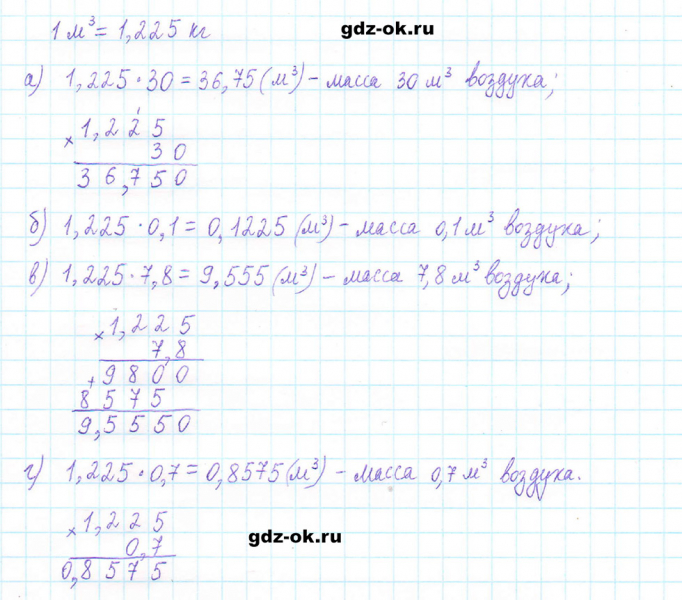 1 м³ = 1,225 кг
gdz-ok.ru
а) 1,225 · 30 = 36,75 (м³) – масса 30 м³ воздуха;
1
× 1,2 2 5
3 0
3 6,7 5 0
б) 1,225 · 0,1 = 0,1225 (м³) – масса 0,1 м³ воздуха;
в) 1,225 · 7,8 = 9,555 (м³) – масса 7,8 м³ воздуха;
× 1,2 2 5
7,8
+ 9 8 0 0
8 5 7 5
9,5 5 5 0
г) 1,225 · 0,7 = 0,8575 (м³) – масса 0,7 м³ воздуха.
× 1,2 2 5
0,7
0,8 5 7 5
gdz-ok.ru